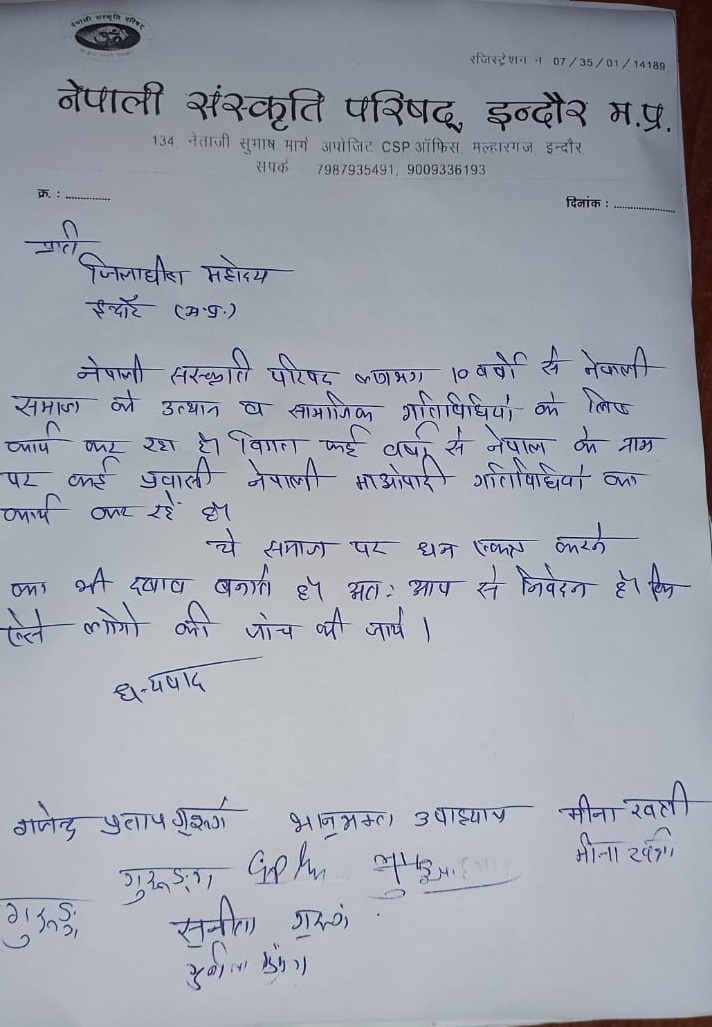 नेपाली संस्कृति परिषद
रजिस्ट्रेशन न 07/35/01/14189
नेपाली संस्कृति परिषद्, इन्दौर म.प्र.
134, नेताजी सुभाष मार्ग अपोजिट CSP ऑफिस, मल्हारगज, इन्दौर,
सपर्क 7987935491, 9009336193
क्र. : ..............
दिनांक : .....................
प्रति
जिलाधीश महोदय
इन्दौर (म.प्र.)
नेपाली संस्कृति परिषद लगभग 10 वर्षो से नेपाली
समाज के उत्थान व सामाजिक गतिविधियों के लिए
कार्य कर रहा है। विगत कई वर्षो से नेपाल के नाम
पर कई प्रवासी नेपाली माओवादी गतिविधियों का
कार्य कर रहें है।
ये समाज पर धन एकत्र करने
का भी दबाव बनाते है। अत: आप से निवेदन है। कि
ऐसे लोगो की जांच की जाये।
धन्यवाद
गजेन्द्र प्रताप गुरूंग भानुभक्त उपाध्याय मीना खत्री
गुरूङ्ग मीना खत्री
गुरूङ्ग सुनीता गुरूंग